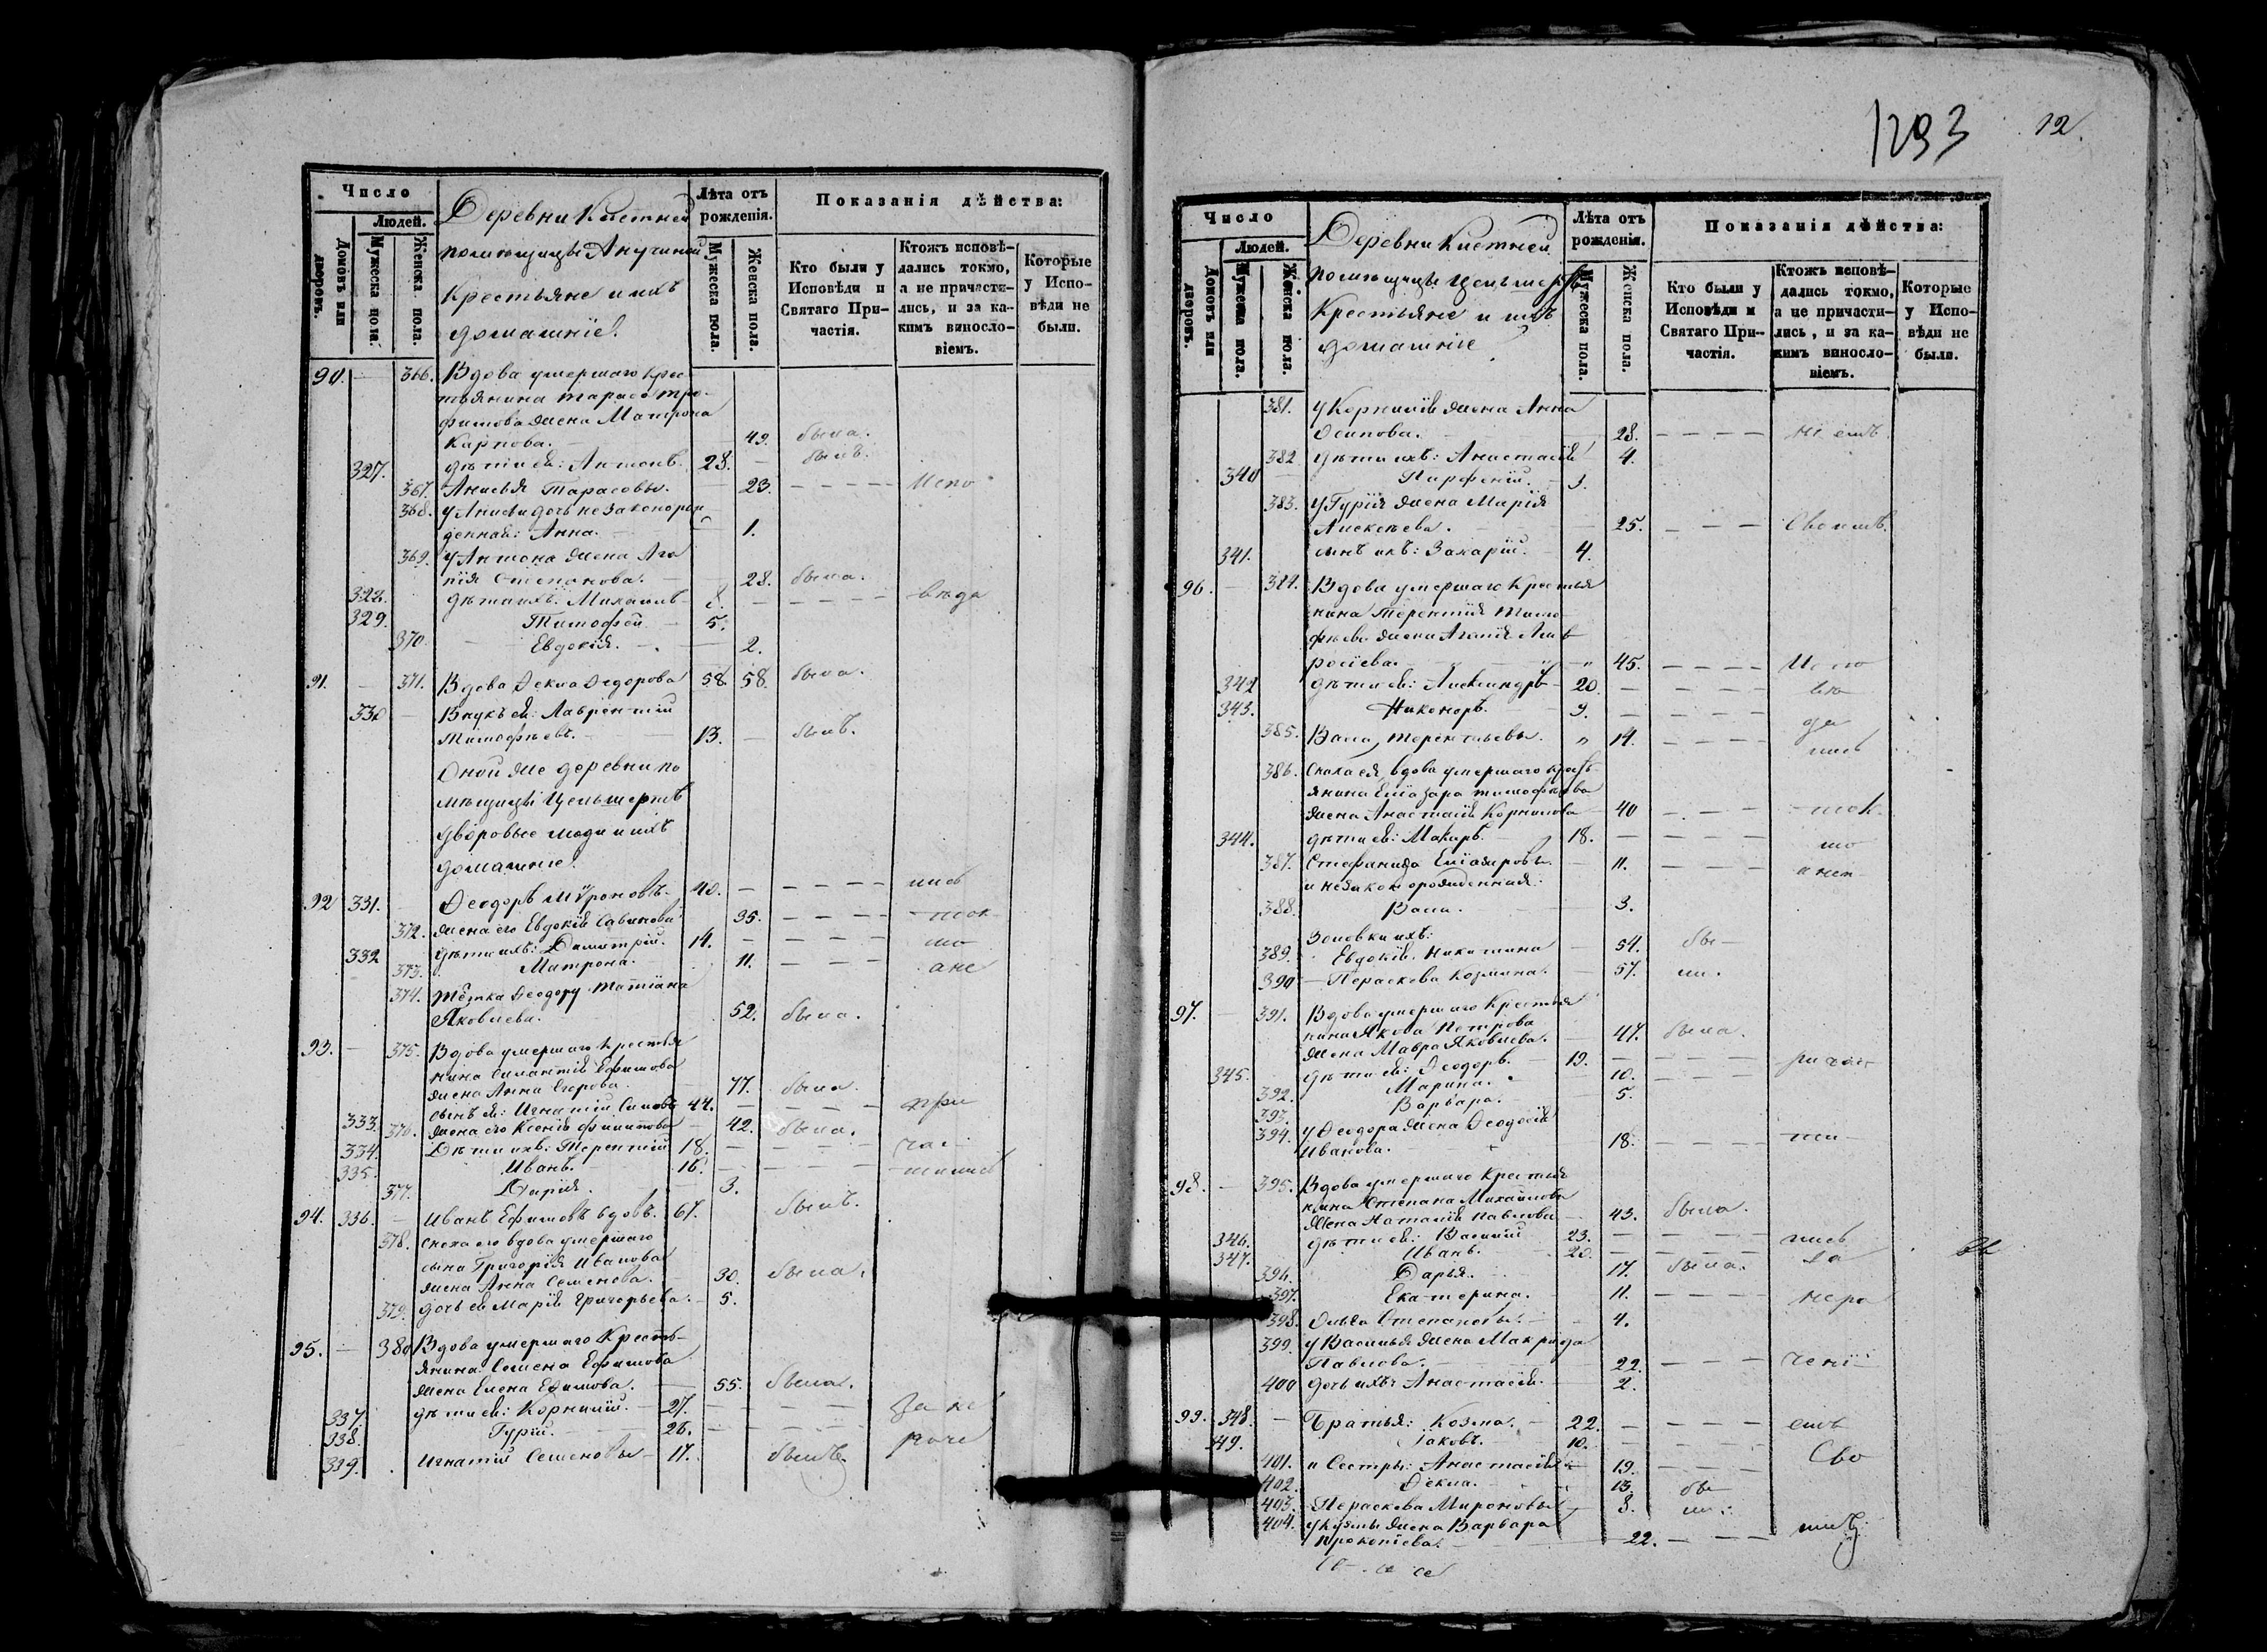 Число
Людей.
Домовъ или дворовъ.
Мужеска пола.
Женска пола.
Деревни Кистней
помѣщицы Анучиной
Крестьяне и ихъ
домашніе.
Лѣта отъ рожденія.
Мужеска пола.
Женска пола.
Показанія дѣйства:
Кто были у Исповѣди и Святаго Причастія.
Ктожъ исповѣдались токмо, а не причастились, и за какимъ винословіемъ.
Которые у Исповѣди не были.
90. — 366. Вдова умершаго Крес
тьянина Тараса Тро-
фимова жена Матрона
Карпова. — 49. была.
327. дѣти ея: Антонъ 28. — былъ.
367. Анисья Тарасовы. — 23. — — — — Испо
368. у Анисьи дочь незаконорож
денная: Анна. — 1.
369. у Антона жена Ага
пія Степанова. — 28. была.
328. дѣти ихъ: Михаилъ 8. — — — — вѣда
329. Тимофей — 5.
370. — Евдокія. — 2.
91. — 371. Вдова Ѳекла Ѳедорова 58. 58. была.
330 — Внукъ ея: Лаврентій
Тимофѣевъ. — 13. — былъ.
Оной же деревни по
мѣщицы
дворовые люди и ихъ
домашніе.
92 331. Ѳеодоръ Мѵроновъ. 40. — — — — лись
372. жена его Евдокія Савинова 35. — — — — ток
332 дѣти ихъ: Димитрій. 14. — — — — мо
373. Матрона. 11. — — — а не
374. Тётка Ѳеодору Татіана
Яковлева. 52. была.
93. — 375. Вдова умершаго Крестья
нина Силантія Ефимова
жена Анна Егорова. 77. была.
333. сынъ ея: Игнатій Силовъ 44. — — — — при
376. жена его Ксенія Филипова — 42. была.
334. Дѣти ихъ: Терентій 18. — — — — час-
335. Иванъ. — 16. — — — — тились
377. Дарія. — 3.
94. 336. — Иванъ Ефимовъ вдовъ. 67. былъ.
378. Сноха его вдова умершаго
сына Григорія Иванова
жена Анна Семенова. — 30. была.
379. дочь ея Марія Григорьева. — 5.
95. — 380 Вдова умершаго Кресть-
янина Семена Ефимова
жена Елена Ефимова. — 55. была.
337. дѣти ея: Корнилій. — 27. — — — — За не
338. Гурій. — 26. — — — — раче
339. Игнатій Семеновы — 17. былъ.
1293 12.
Число
Людей.
Домовъ или дворовъ.
Мужеска пола.
Женска пола.
Деревни Кистней
помѣщицы
Крестьяне и ихъ
домашніе
Лѣта отъ рожденія.
Мужеска пола.
Женска пола.
Показанія дѣйства:
Кто были у Исповѣди и Святаго Причастія.
Ктожъ исповѣдались токмо, а не причастились, и за какимъ винословіемъ.
Которые у Исповѣди не были.
381. у Корнилія жена Анна
Осипова. 28. — — — — ніемъ
382 дѣти ихъ: Анастасія 4.
340 Парфеній. — 3.
383. у Гурія жена Марія
Алексѣева. 25. — — — Своимъ.
341. сынъ ихъ: Захарій. 4.
96. — 384. Вдова умершаго Крестья
нина Терентія Тимо-
фѣева жена Агапія Амв
росіева. „ 45. — — — — Испо
342 дѣти ея: Александръ 20. — — — — вѣ-
343. Никоноръ. 9. — — — — да
385. Васса Терентьевы. „ 14. — — — — лись
386. Сноха ея вдова умершаго крест-
янина Еліазара Тимофѣева
жена Анастасія Корнилова 40 — — — ток
344. дѣти ея: Макаръ. 18. — — — — мо
387. Стефанида Еліазаровы. 11. — — — а не
и незаконорожденная:
388. Васса. 3.
Золовки ихъ:
389. Евдокія Никитина — 54. бы-
390 — Параскева Козмина. — 57. ли.
97. — 391. Вдова умершаго Крестья
нина Якова Петрова
жена Мавра Яковлева. 47. была.
345. дѣти ея: Ѳеодоръ. 19. — — — — ричас
392. Марина. 10. — — — —
393. Варвара. — 5.
394. у Ѳеодора жена Ѳеодосія
Иванова. 18. — — — ти-
98. — 395. Вдова умершаго Крестья
нина Степана Михайлова
жена Наталія Павлова — 43. была.
346. дѣти ея: Василій 23. — — — — лись
347. Иванъ. 20. — — — — За
396. Дарья. — 17. была.
397. Екатерина. — 11. — — — — нера
398. Ольга Степановы. — 4.
399. у Василья жена Макрида
Павлова. 22. — — — — чені
400 дочь ихъ: Анастасія. 2.
99. 348. — Братья: Козма. — 22. — — — — емъ
349. Іаковъ. 10. — — — — Сво
401. и Сестры: Анастасія — 19. — — — —
402. Ѳекла. 13. бы-
403. Параскева Мироновы 8. ли.
404. у Кузмы жена Варвара
Прокопіева. 22. — — — — имъ